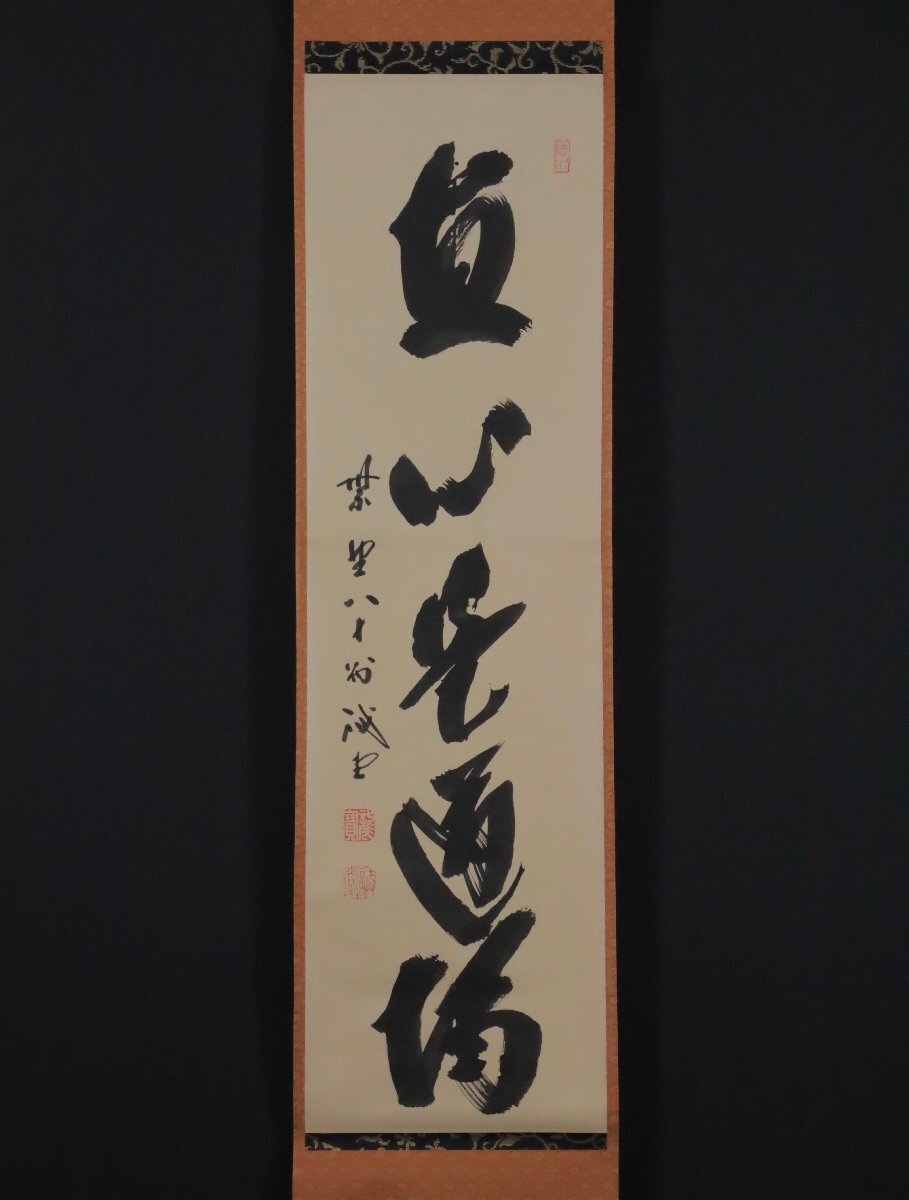 直心是道場
紫野八十翁誡堂